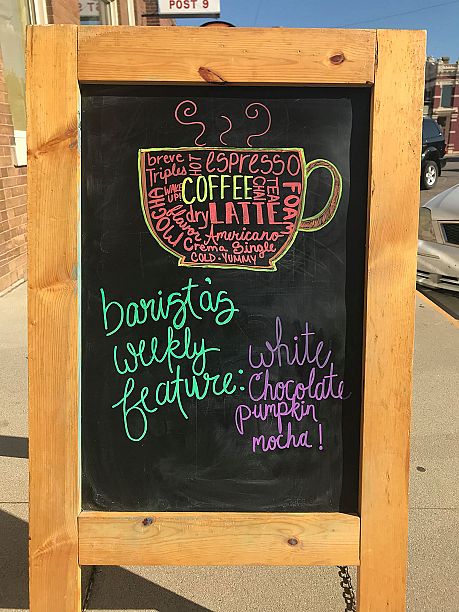 POST 9
breve HOT espresso
Triples
WAKE UP!
COFFEE
CHAI TEA
FOAM
MOCHA
dry LATTE
flavor Americano
Crema Single
COLD · YUMMY
barista's
weekly
feature:
white
Chocolate
pumpkin
mocha!